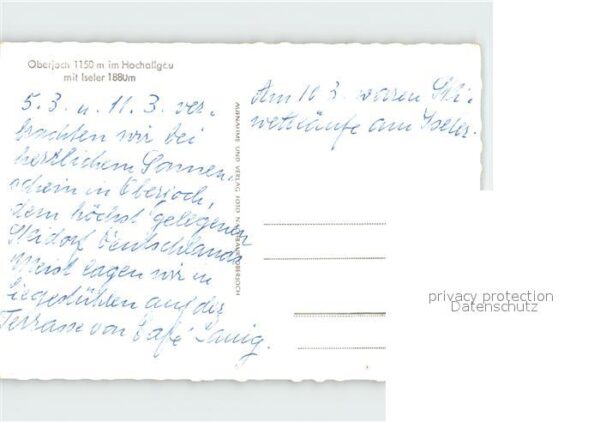 Oberjoch 1150 m im Hochallgäu
mit Iseler 1880m
5. 3. u. 11. 3. ver-
brachten wir bei
herrlichem Sonnen-
schein in Oberjoch,
dem höchst gelegenen
Skidorf Deutschlands
Meist lagen wir in
Liegestühlen auf der
Terrasse von Café
Am 10 3. waren Ski-
wettläufe am Iseler.
AUFNAHME UND VERLAG FOTO OBERJOCH
privacy protection
Datenschutz